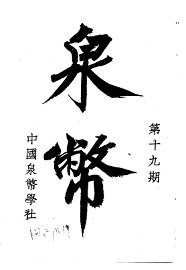 泉幣
第十九期
中國泉幣學社